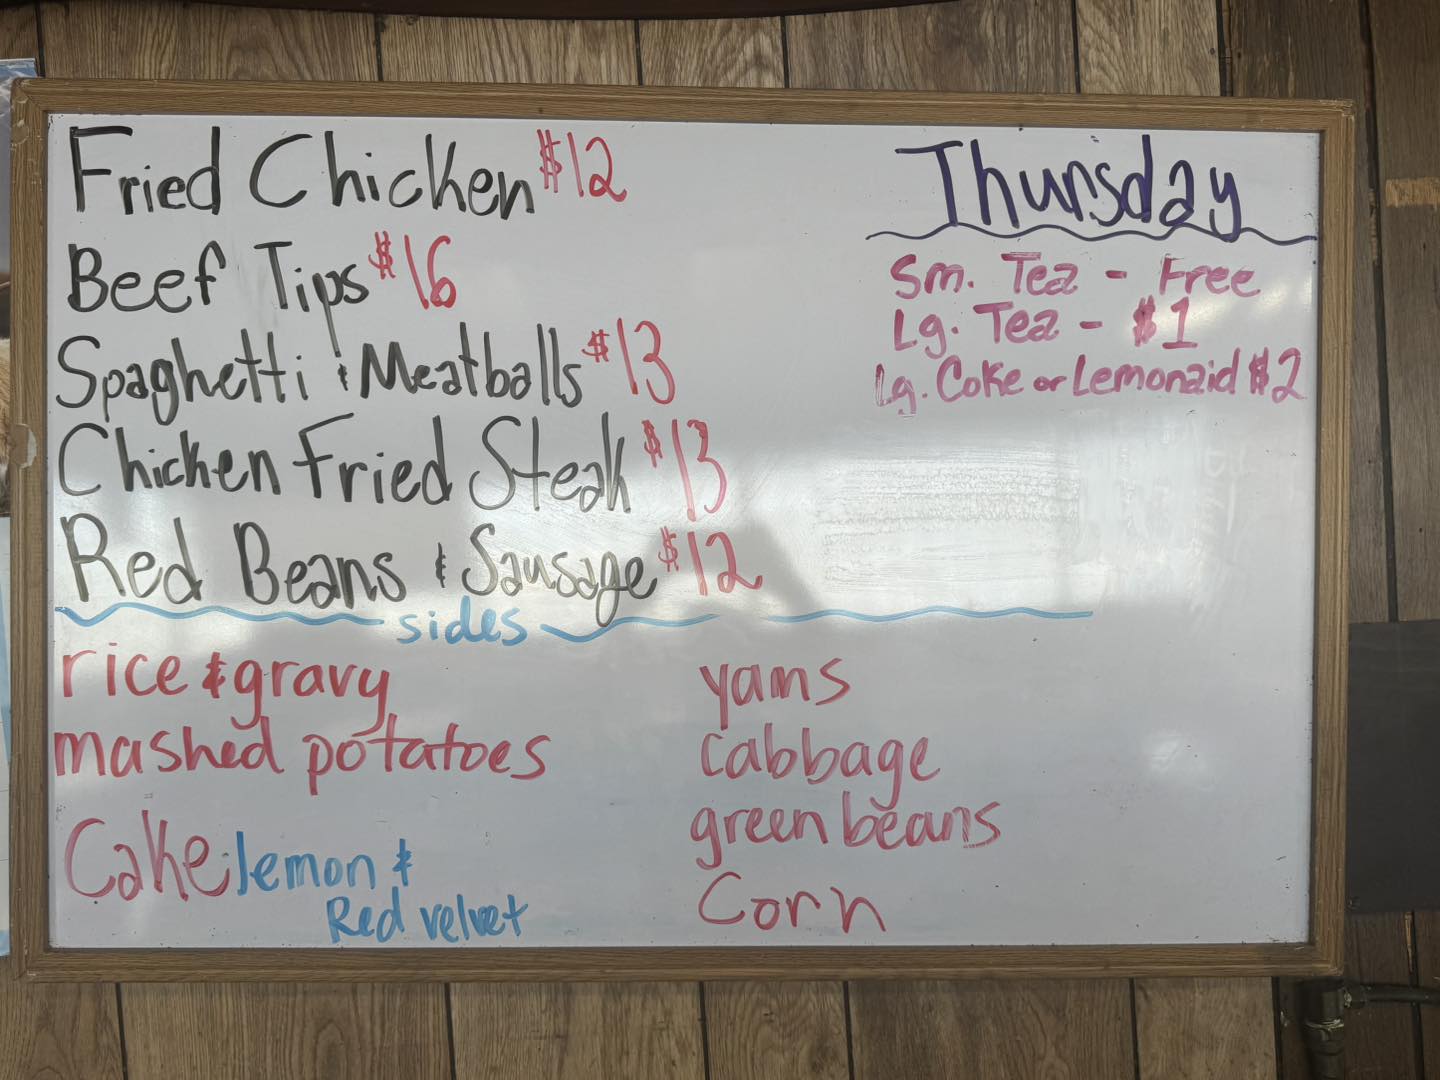 Fried Chicken $12
Beef Tips $16
Spaghetti & Meatballs $13
Chicken Fried Steak $13
Red Beans & Sausage $12
Thursday
Sm. Tea - Free
Lg. Tea - $1
Lg. Coke or Lemonaid $2
sides
rice & gravy
mashed potatoes
Cake lemon &
Red velvet
yams
cabbage
green beans
Corn